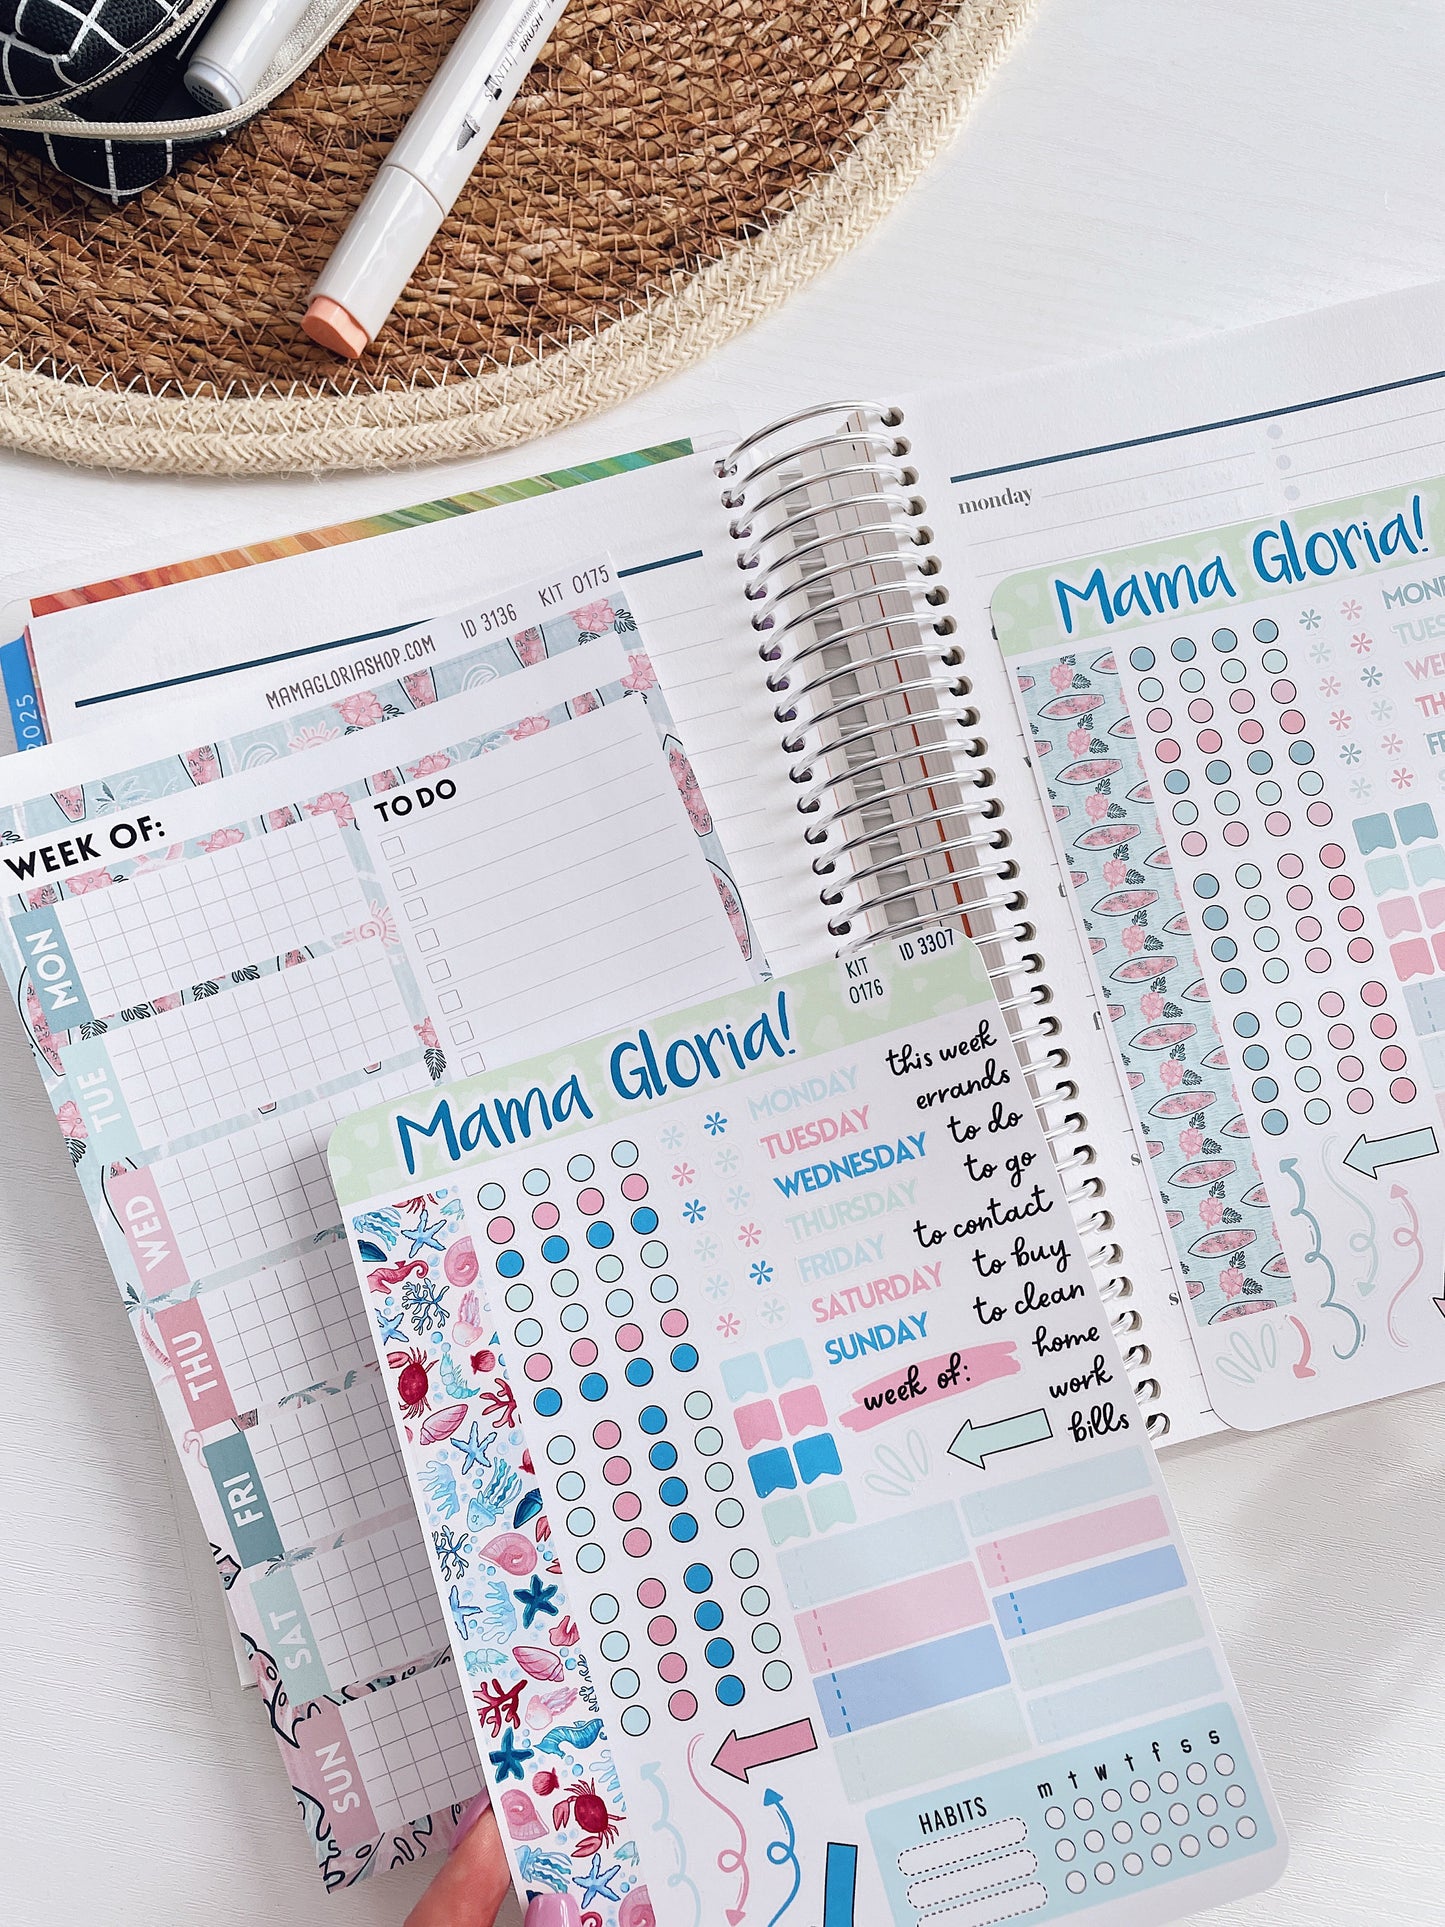 SANTI
SKETCHMARKER
BRUSH
2025
MAMAGLORIASHOP.COM
ID 3136
KIT 0175
WEEK OF:
MON
TUE
WED
THU
FRI
SAT
SUN
TO DO
monday
Mama Gloria!
Mama Gloria!
KIT
0176
ID 3307
MONDAY
TUESDAY
WEDNESDAY
THURSDAY
FRIDAY
SATURDAY
SUNDAY
this week
errands
to do
to go
to contact
to buy
to clean
home
work
bills
week of:
HABITS
m t w t f s s